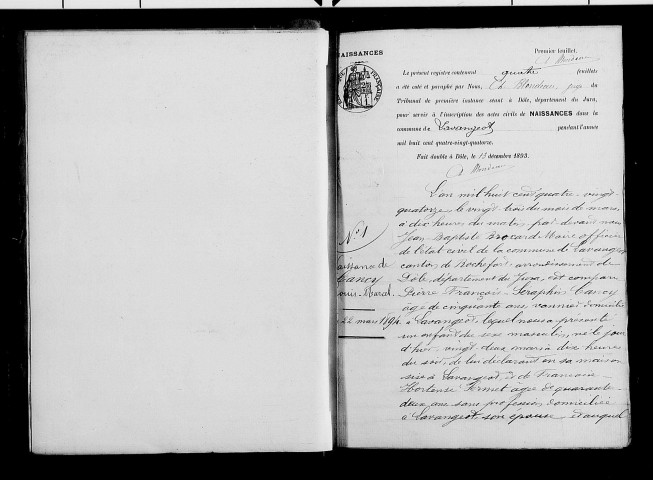 NAISSANCES
Premier feuillet.
Le présent registre contenant quatre feuillets
a été coté et paraphé par Nous, Ch. juge du
Tribunal de première instance séant à Dôle, département du Jura,
pour servir à l'inscription des actes civils de NAISSANCES dans la
commune de Lavangeot pendant l'année
mil huit cent quatre-vingt-quatorze.
Fait double à Dôle, le 15 décembre 1893.
L'an mil huit cent quatre-vingt-
quatorze, le vingt trois du mois de mars
à dix heures du matin, par devant nous
Jean Baptiste Brocard Maire officier
de l'état civil de la commune de Lavangeot
canton de Rochefort arrondissement de
Dôle, département du Jura, est comparu
Pierre François Séraphin Cancy
âgé de cinquante ans, vannier domicilié
à Lavangeot, lequel nous a présenté
un enfant du sexe masculin, né le jour
d'hier vingt deux mars à dix heures
du soir, de lui déclarant en sa maison
sise à Lavangeot, et de Francoise
Hortense âgée de quarante-
deux ans sans profession, domiciliée
à Lavangeot, son épouse et auquel
N° 1
aissance de
Cancy
ouis Marcel
22 mars 1894